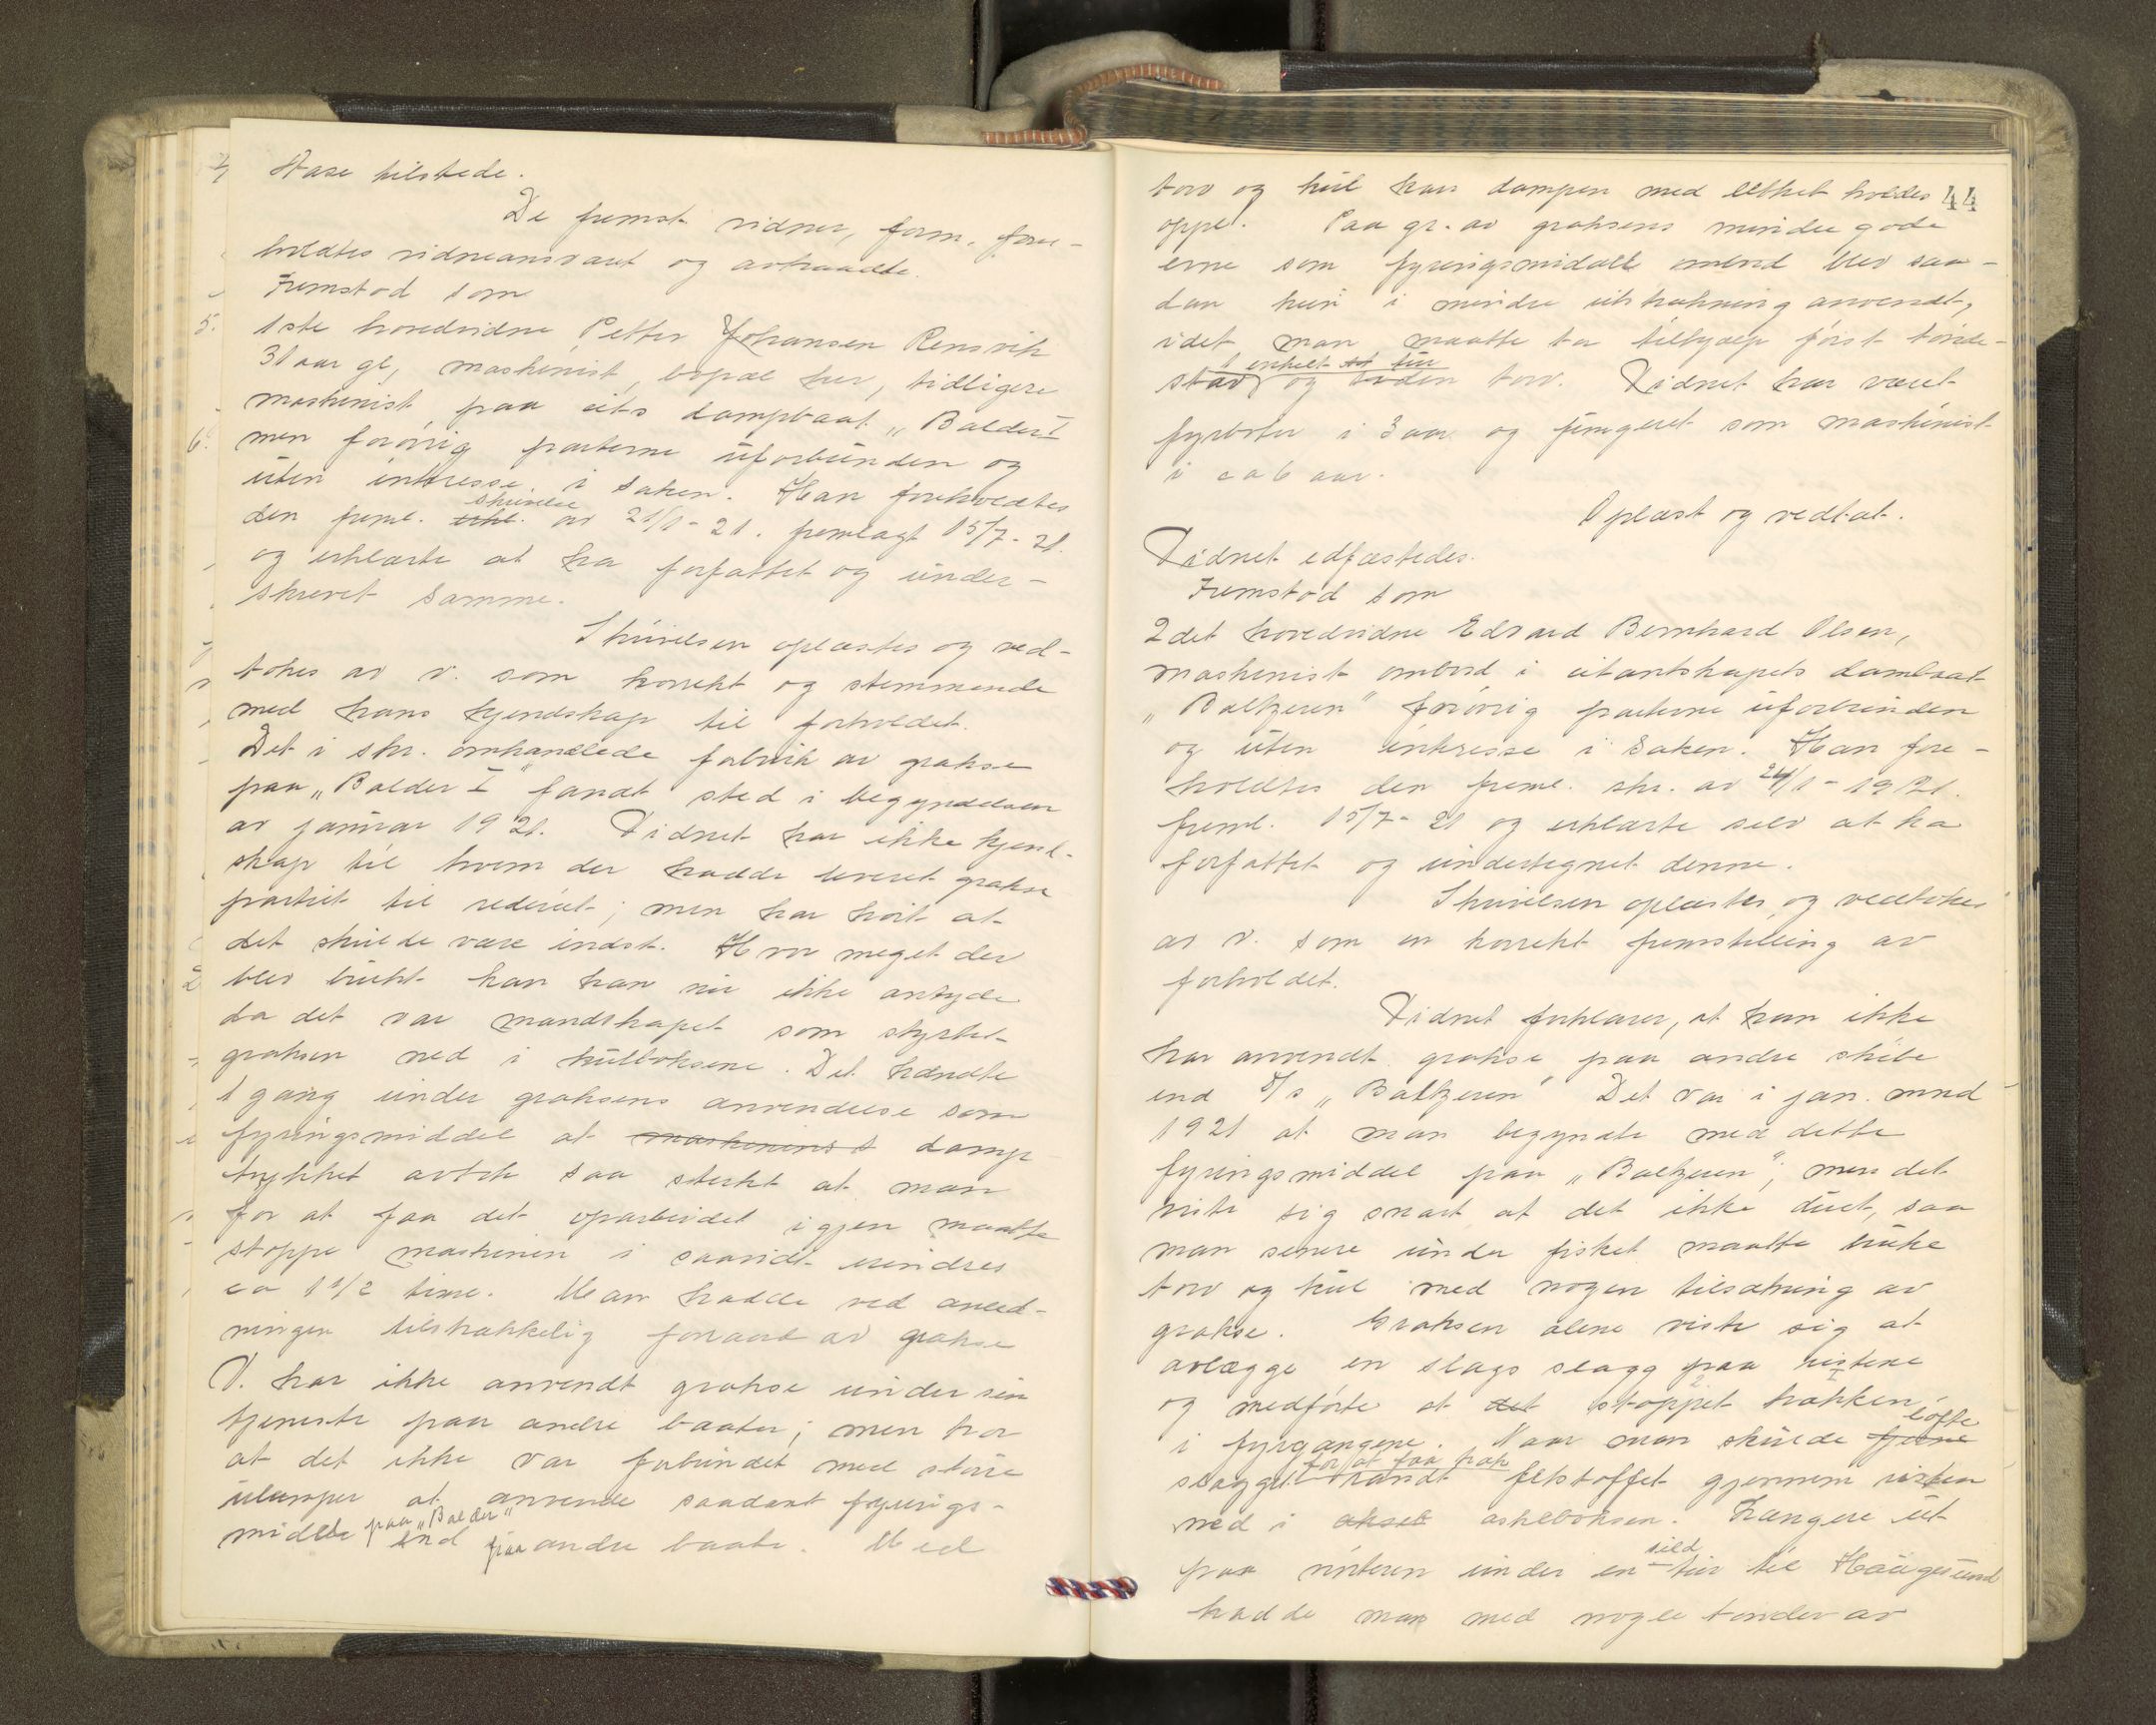 Aase tilstede.
De fremst. vidner, form. fore-
holdtes vidneansvaret og avtraadte.
Fremstod som
1ste hovedvidne Petter Johansen Rensvik
31 aar gl, maskinist, bopæl her, tidligere
maskinist paa cits dampbaat „Balder I
men forøvrig parterne uforbunden og
uten interesse i saken. Han foreholdtes
den freml. erkl. skrivelse av 21/1-21. fremlagt 15/7-21.
og erklærte at ha forfattet og under-
skrevet samme.
Skrivelsen oplæstes og ved-
tokes av v. som korrekt og stemmende
med hans kjendskap til forholdet.
Det i skr. omhandlede forbruk av grakse
paa „Balder I" fandt sted i begyndelsen
av januar 1921. Vidnet har ikke kjend-
skap til hvem der hadde leveret grakse
partiet til rederiet; men har hørt at
det skulde være indst. Hvor meget der
blev brukt kan han nu ikke antyde
da det var mandskapet som styrtet
graksen ned i kulboksene. Det hændte
1 gang under graksens anvendelse som
fyringsmiddel at maskinens t damp
trykket avtok saa sterkt at man
for at faa det oparbeidet igjen maatte
stoppe maskinen i saavidt erindres
ca 1 1/2 time. Man hadde ved anled-
ningen tilstrækkelig forraad av grakse
V. har ikke anvendt grakse under sin
tjeneste paa andre baater; men tror
at det ikke var forbundet med større
ulemper at anvende saadant fyrings-
middel paa „Balder" end paa andre baate. Med
44
torv og kul kan dampen med letthet holdes
oppe. Paa gr. av graksens mindre gode
evne som fyringsmiddel ombord blev saa-
dan kun i mindre utstrækning anvendt,
idet man maatte ta tilhjælp først tønde-
stav 1 enkelt tur og siden torv. Vidnet har været
fyrbøter i 3 aar og fungeret som maskinist
i ca 6 aar.
Oplæst og vedtat.
Vidnet edfæstedes.
Fremstod som
2det hovedvidne Edvard Bernhard Olsen,
maskinist ombord i citantskapets dambaat
„Baltzeren" forøvrig parterne uforbunden
og uten interesse i saken. Han fore-
holdtes den freml. skr. av 24/1-1921.
freml. 15/7-21 og erklærte selv at ha
forfattet og undertegnet denne.
Skrivelsen oplæstes og vedtokes
av v. som en korrekt fremstilling av
forholdet.
Vidnet forklarer, at han ikke
har anvendt grakse paa andre skibe
end S/s „Baltzeren" Det var i jan. mnd
1921 at man begyndte med dette
fyringsmiddel paa „Baltzeren"; men det
viste sig snart at det ikke duet, saa
man senere under fisket maatte bruke
torv og kul med nogen tilsætning av
grakse. Graksen alene viste sig at
avlægge en slags slagg paa ristene
og medførte at det stoppet trækken
i fyrgangene. Naar man skulde fjerne løfte
slagget for at faa træk randt fetstoffet gjennem risten
ned i askeboksen. Længere ut
paa vinteren under en sild tur til Haugesund
hadde man med nogle tønder av